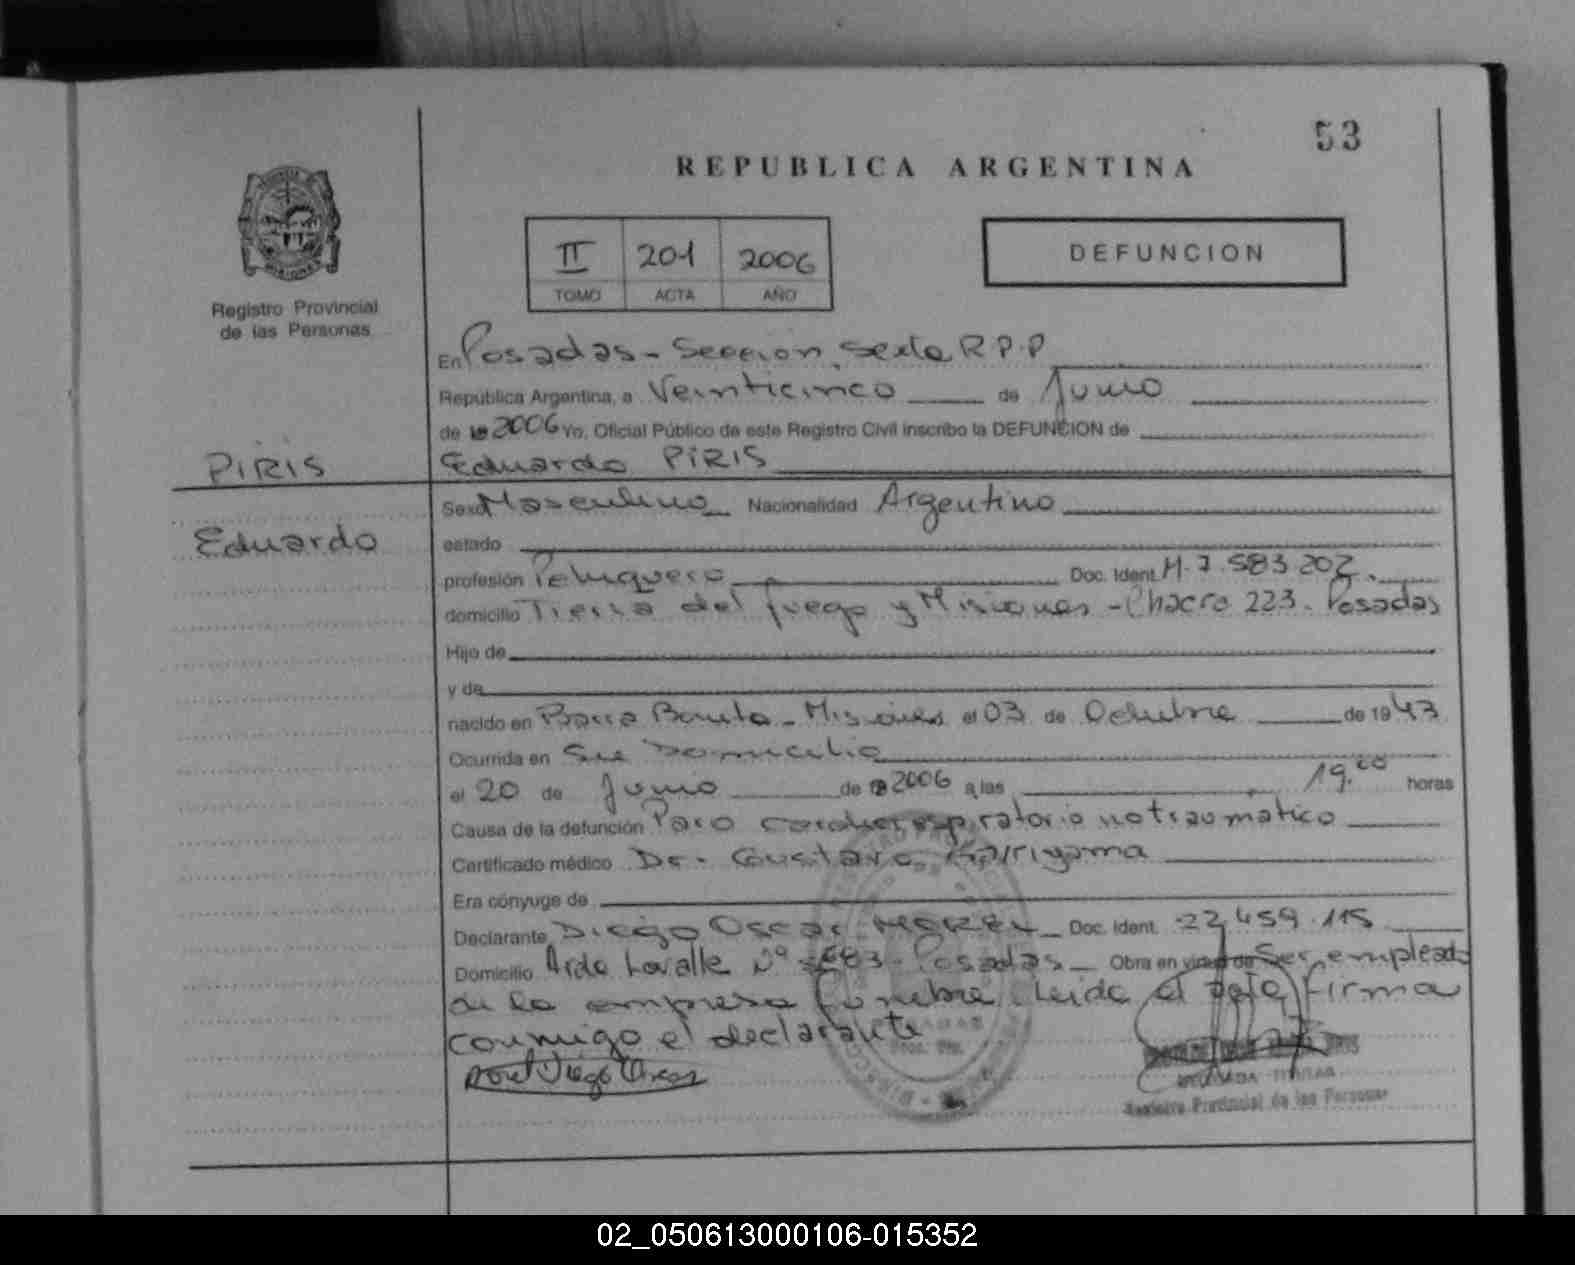 53
REPUBLICA ARGENTINA
II 201 2006
TOMO ACTA AÑO
DEFUNCION
MISIONES
Registro Provincial
de las Personas
En Posadas - Sección Sexta R.P.P
República Argentina, a Veinticinco de Junio
de 19 2006 Yo, Oficial Público de este Registro Civil inscribo la DEFUNCION de
PIRIS
Eduardo PIRIS
Eduardo
Sexo Masculino Nacionalidad Argentino
estado
profesión Peluquero Doc. Ident. M. 7.583.202.
domicilio Tierra del fuego y Misiones - Chacra 223. Posadas
Hijo de
y de
nacido en Barra Bonita - Misiones el 03 de Octubre de 19 43
Ocurrida en Su Domicilio
el 20 de Junio de 19 2006 a las 19.00 horas
Causa de la defunción Paro cardiorespiratorio no traumatico
Certificado médico Dr. Gustavo
Era cónyuge de
Declarante Diego Oscar MOREL Doc. Ident. 22.459.115
Domicilio Avda Lavalle Nº Posadas Obra en virtud de Ser empleado
de la empresa Funebre. Leida el acta, firma
conmigo el declarante
Morel Diego Oscar
DELEGADA TITULAR
Registro Provincial de las Personas
02_050613000106-015352